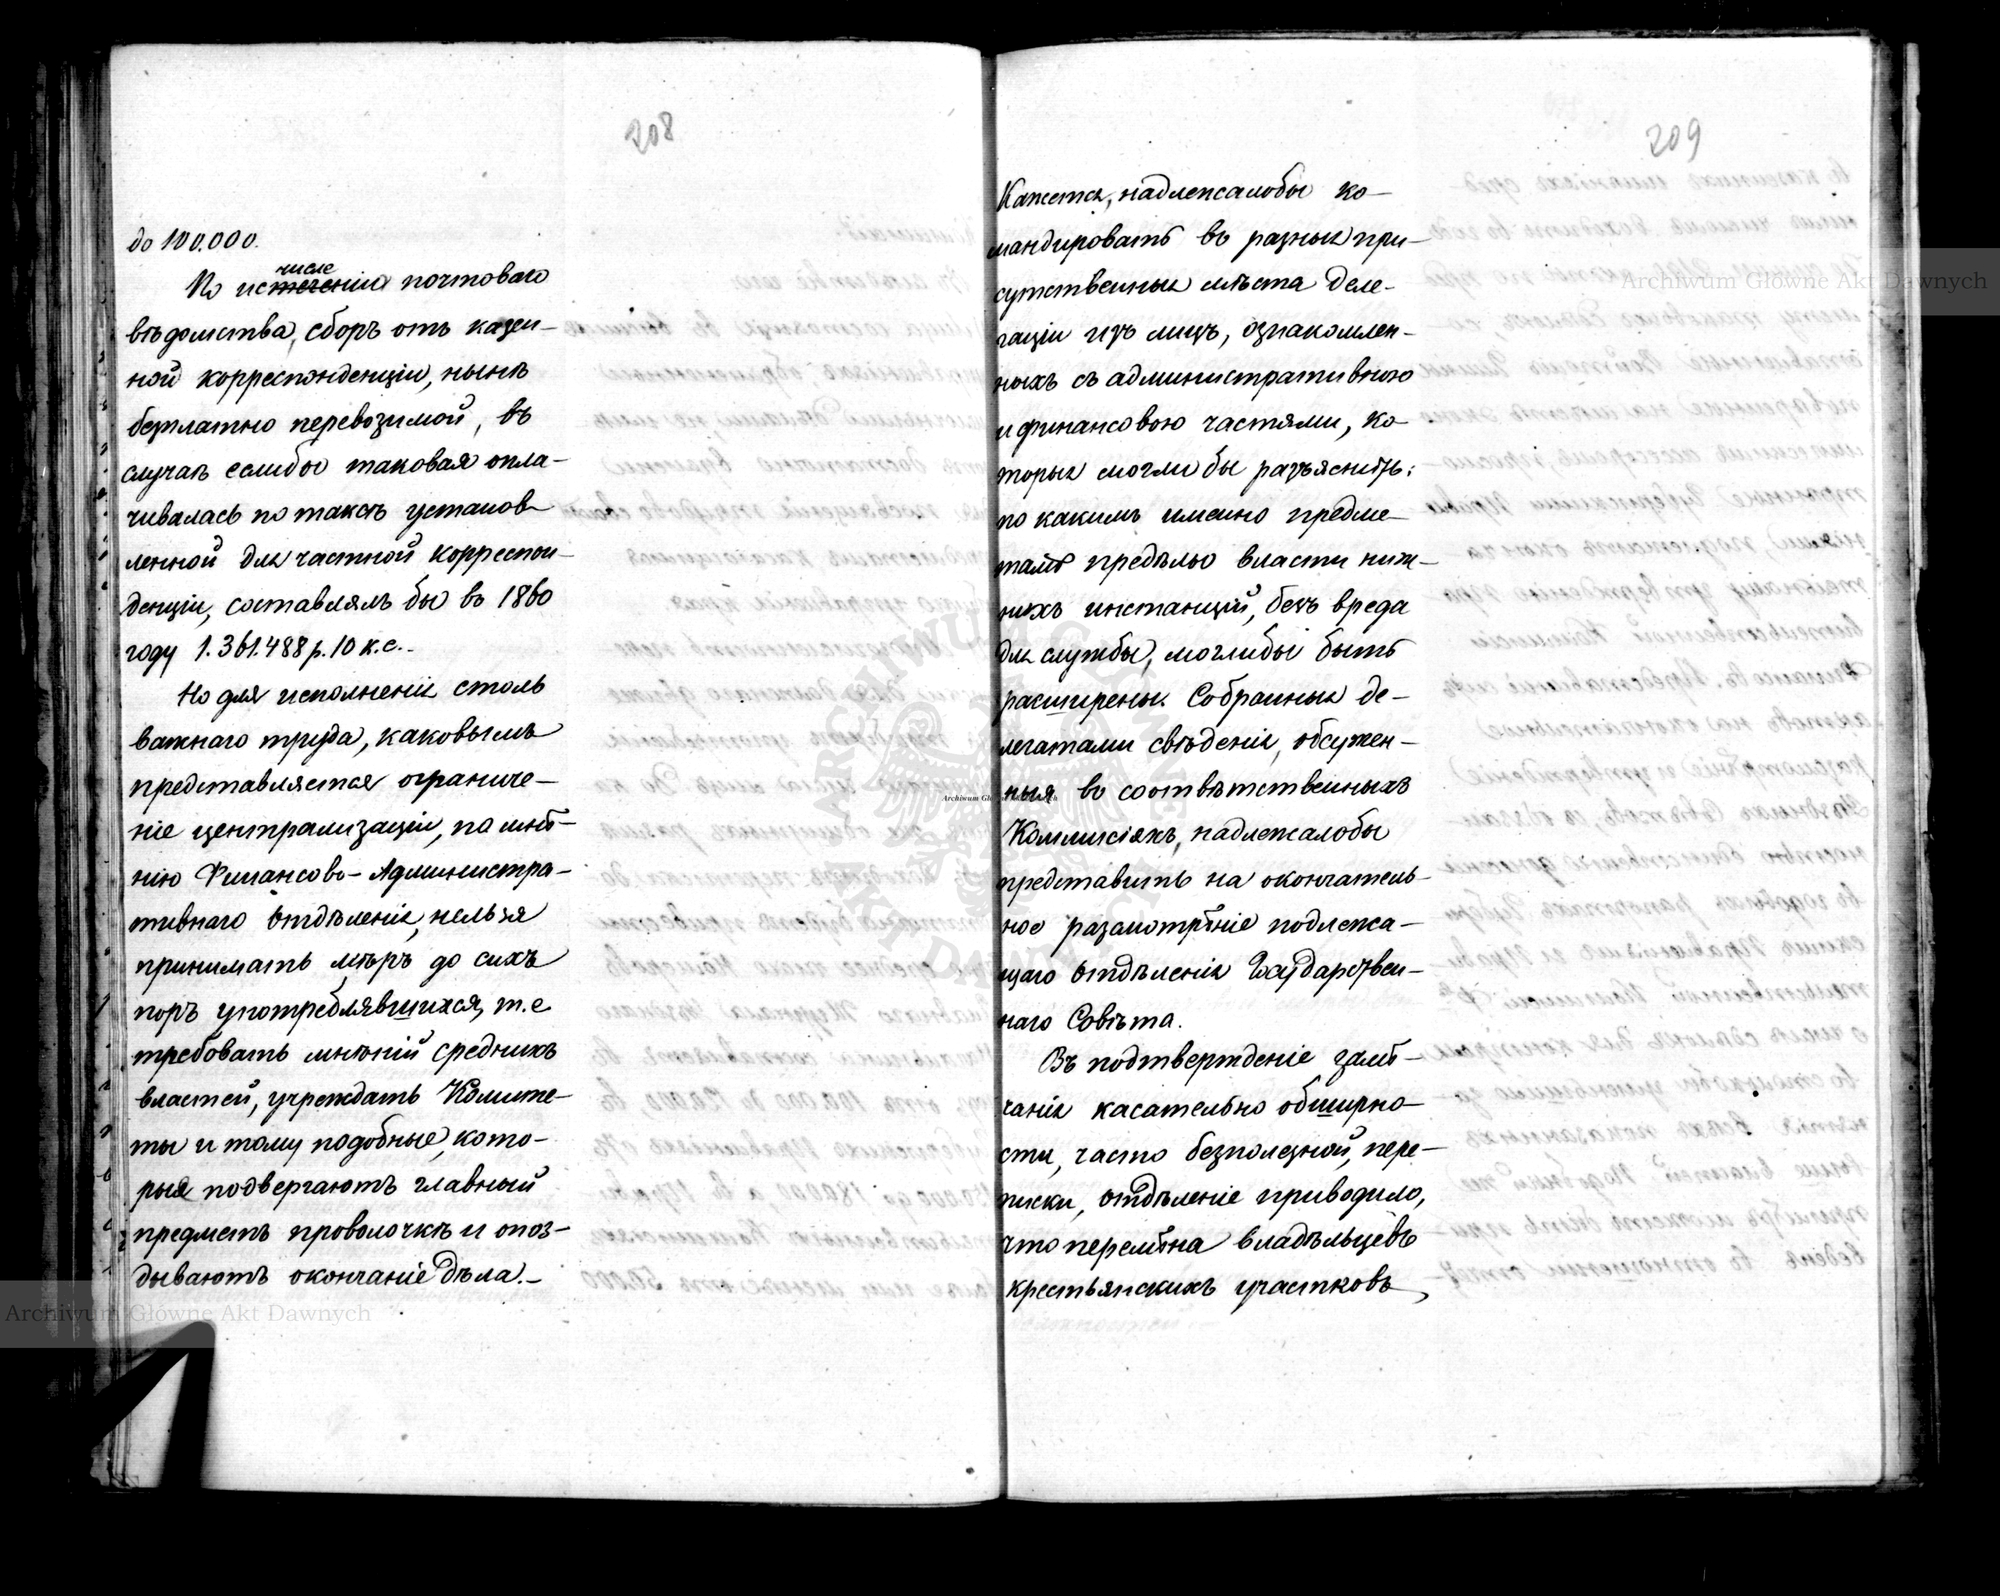 208
до 100.000.
По исчисленію почтоваго
вѣдомства, сборъ отъ казен-
ной корреспонденціи, нынѣ
безплатно перевозимой, въ
случаѣ еслибы таковая опла-
чивалась по таксѣ установ-
ленной для частной корреспон-
денціи, составлялъ бы въ 1860
году 1.361.488 р. 10 к. с.-
Но для исполненія столь
важнаго труда, каковымъ
представляется ограниче-
ніе централизаціи, по мнѣ-
нію Финансово-Администра-
тивнаго Отдѣленія, нельзя
принимать мѣръ до сихъ
поръ употреблявшихся, т.е
требовать мнѣній среднихъ
властей, учреждать Комите-
ты и тому подобные, кото-
рыя подвергаютъ главный
предметъ проволочкѣ и опоз-
дываютъ окончаніе дѣла.-
209
Кажется, надлежалобы ко-
мандировать въ разныя при-
сутственныя мѣста деле-
гаціи изъ лицъ, ознакомлен-
ныхъ съ административною
и финансовою частями, ко-
торыя моглибы разъяснить:
по какимъ имено предме-
тамъ предѣлы власти ниж-
нихъ инстанцій, безъ вреда
для службы, моглибы быть
расширены. Собранныя де-
легатами свѣденія, обсужен-
ныя въ соотвѣтственныхъ
Коммисіяхъ, надлежалобы
представить на окончатель-
ное разсмотрѣніе подлежа-
щаго Отдѣленія Государствен-
наго Совѣта.
Въ подтвержденіе замѣ-
чанія касательно обширно-
сти, часто безполезной, пере-
писки, Отдѣленіе приводило,
что перемѣна владѣльцевъ
крестьянскихъ участковъ,
Archiwum Główne Akt Dawnych
Archiwum Główne Akt Dawnych